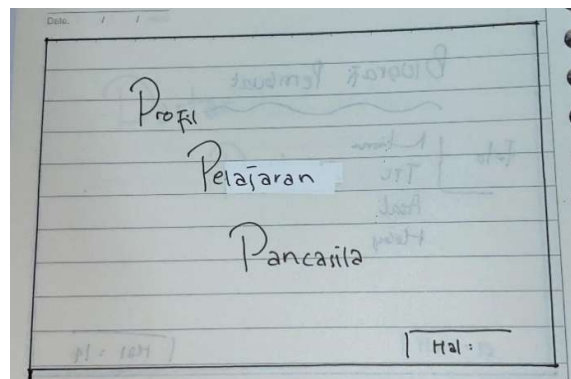 Date. / /
Profil
Pelajaran
Pancasila
Hal :